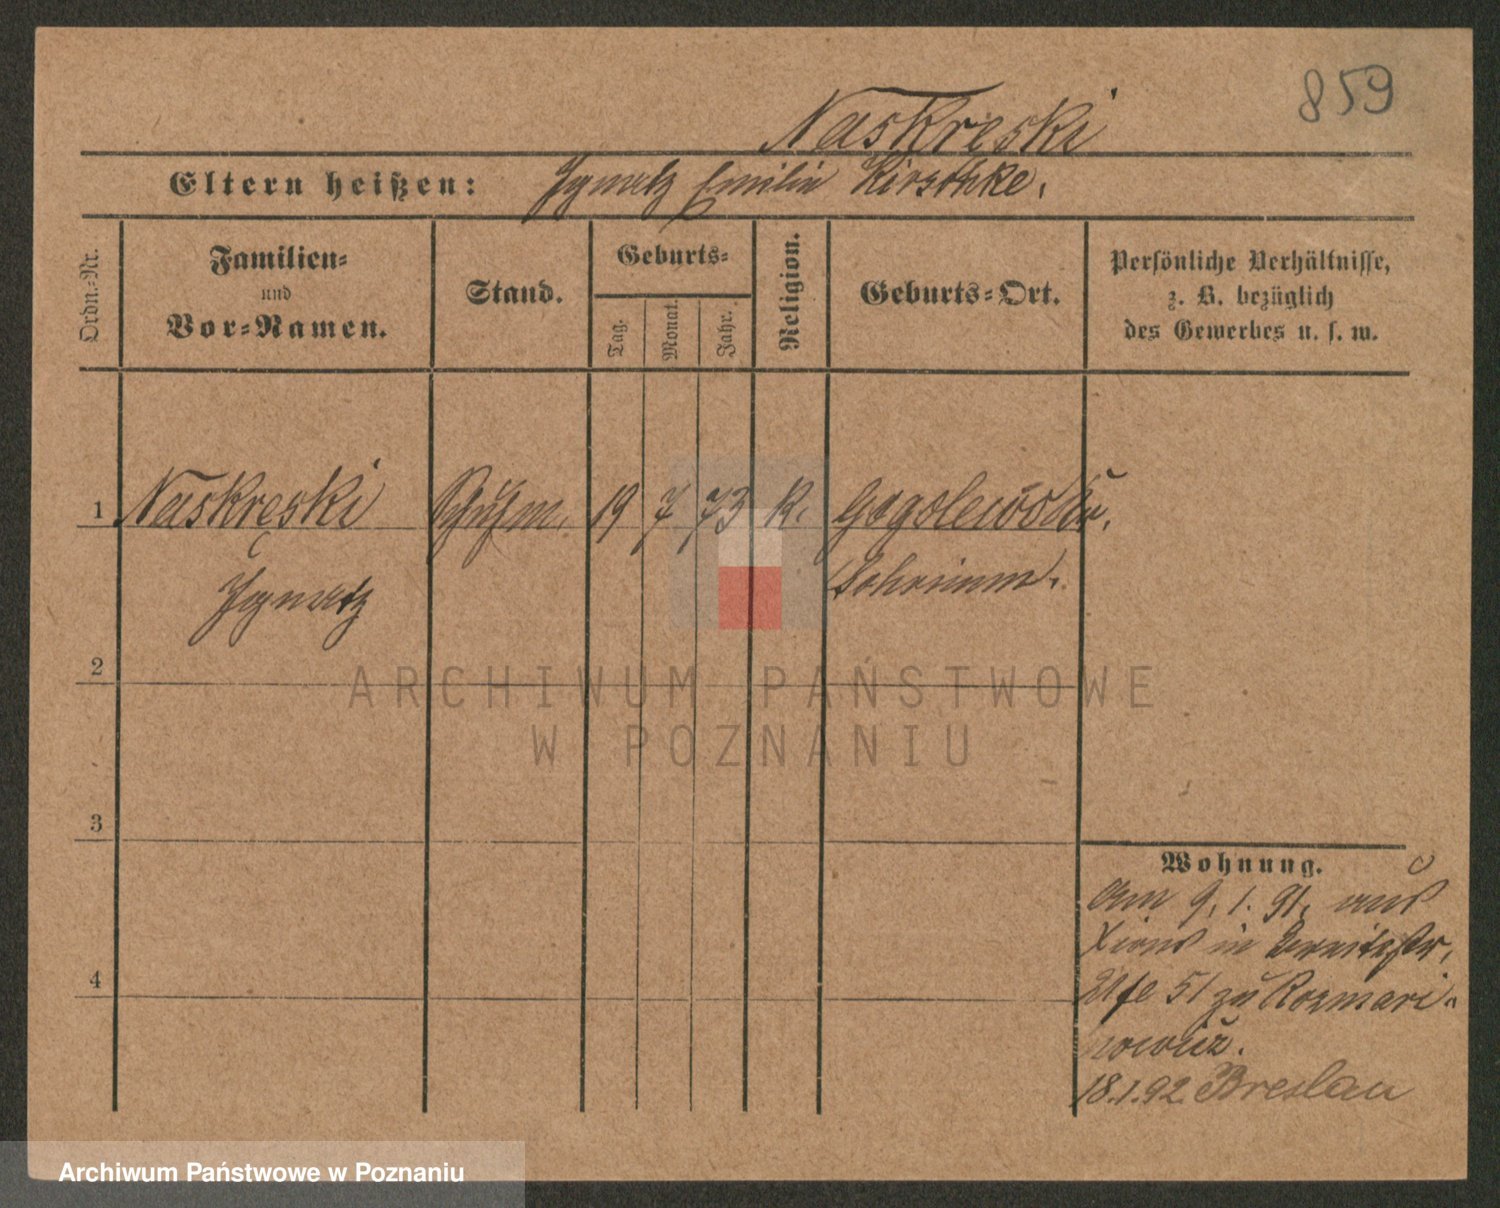 859
Naskreski
Eltern heißen: Ignatz Emilie Kirschke.
Ordn.-Nr.
Familien-
und
Vor-Namen.
Stand.
Geburts-
Tag.
Monat.
Jahr.
Religion.
Geburts-Ort.
Persönliche Verhältnisse,
z. B. bezüglich
des Gewerbes u. s. w.
1 Naskręski Schuhm. 19 7 73 K.
Schrimm.
Ignatz
2
ARCHIWUM PAŃSTWOWE
W POZNANIU
3
Wohnung.
Am 9. 1. 91. aus
Xions in
4
51 zu
18.1.92. Breslau
Archiwum Państwowe w Poznaniu